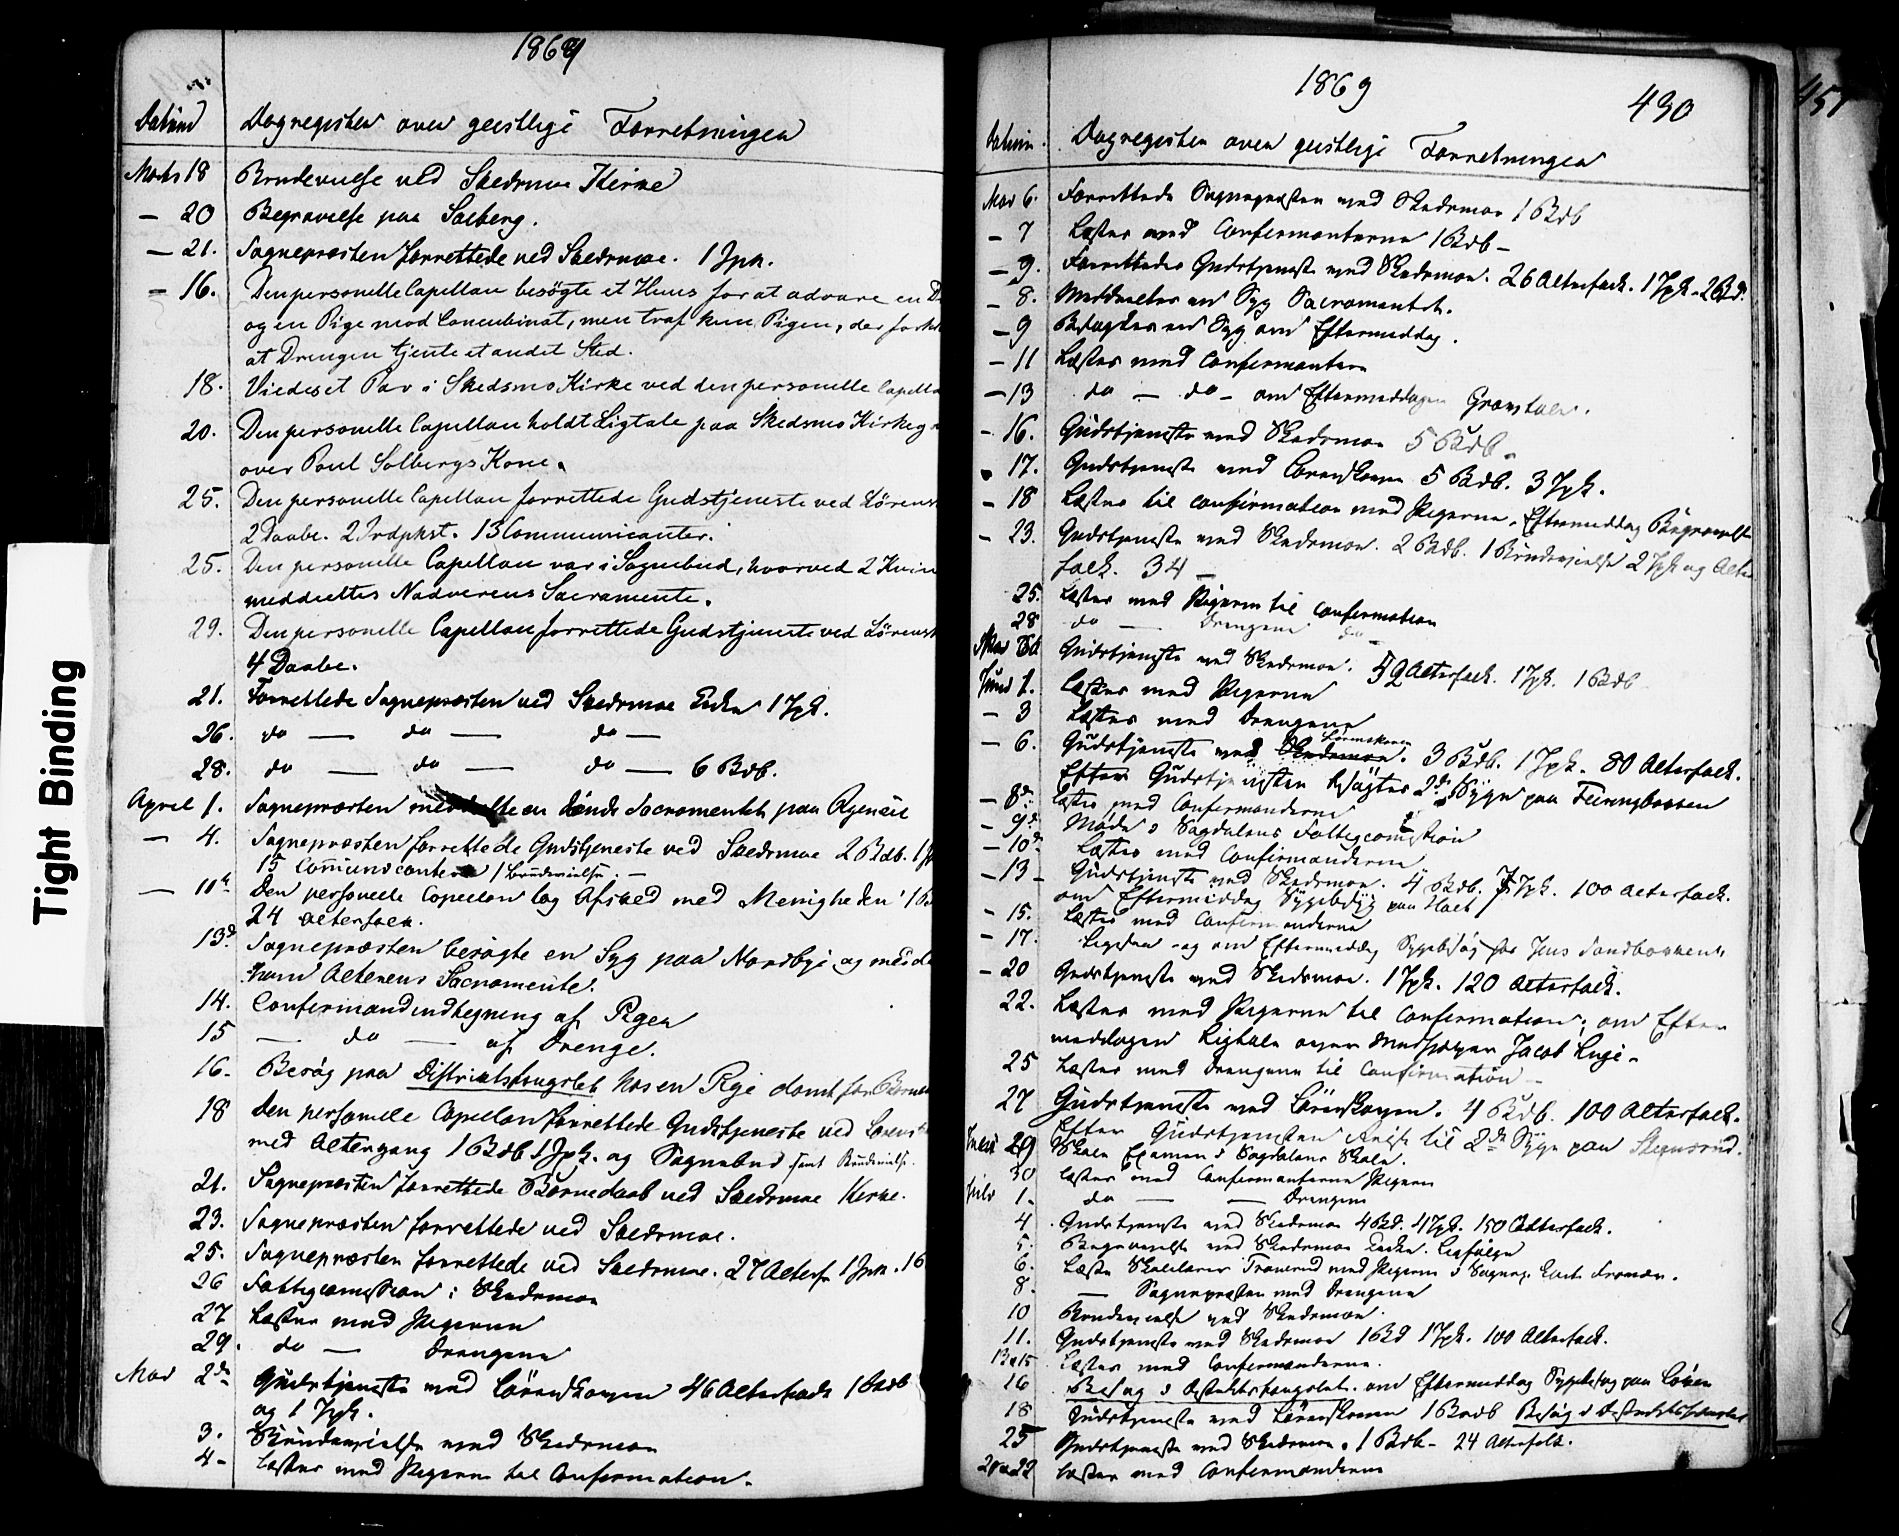 Tight Binding
1869
Datum Dagregister over geistlige Forretninger
Marts 18 Brudevielse ved Skedsmoe Kirke
— 20 Begravelse paa Solberg.
— 21. Sognepræsten forrettede ved Skedsmoe. 1 Jpk.
— 16. Den personelle Capellan besøgte et Huus for at advare en
og en Pige mod Concubinat, men traf kun Pigen, der
at Drengen tjente et andet Sted.
18. Viedes et Par i Skedsmo Kirke ved den personelle Capella
20. Den personelle Capellan holdt Ligtale paa Skedsmo Kirkeg
over Poul Solbergs Kone.
25. Den personelle Capellan forrettede Gudstjeneste ved Lørensk
2 Daabe. 2 Irdpkst. 13 Communicanter.
25. Den personelle Capellan var i Sognebud, hvorved 2 Kvin
meddeeltes Nadverens Sacramente.
29. Den personelle Capellan forrettede Gudstjeneste ved Lørensk
4 Daabe.
21. Forrettede Sognepræsten ved Skedsmoe Kirke 1 Jpk.
26. do — do — do —
28. do — do — do — 6 Bdb.
April 1. Sognepræsten meddeelte en Sacramentet paa
— 4. Sognepræsten forrettede Gudstjeneste ved Skedsmoe 2 Bdb. 1 Jp
15 Communicanter 1 Brudevielse. —
— 11te Den personelle Capellan tog Afsked med Menigheden 1 B
24 Altersfolk.
13de Sognepræsten besøgte en Syg paa Nordbye og medde
ham Alterens Sacramente.
14. Confirmandindtegning af Piger
15 — do — af Drenge.
16. Besøg paa Distriktsfængslet hos en Pige dømt for
18 Den personelle Capellan forrettede Gudstjeneste ved Lørensk
med Altergang 1 Bdb 1 Jpk. og Sognebud samt Brudevielse.
21. Sognepræsten forrettede Barnedaab ved Skedsmoe Kirke.
23. Sognepræsten forrettede ved Skedsmoe.
25. Sognepræsten forrettede ved Skedsmoe. 27 Altersf. 1 Jpk. 16
26 Fattigcommission i Skedsmoe
27 Læstes med Pigerne
29. do — Drengene
Mai 2de Gudstjeneste ved Lørenskogen 46 Altersfolk 1 Bdb
og 1 Jpk.
3. Brudevielse ved Skedsmoe
4 - Læstes med Pigerne til Confirmation.
1869
430
457
Datum. Dagregister over geistlige Forretninger
Mai 6. Forrettede Sognepræsten ved Skedsmoe 1 Bdb
— 7 Læstes med Confirmanterne 1 Bdb —
— 9. Forrettedes Gudstjeneste ved Skedsmoe. 26 Altersfolk. 1 Jpk. 2 Bd.
— 8. Meddeeltes en Syg Sacramentet.
— 9 Besøgtes en Syg om Eftermiddag.
— 11 Læstes med Confirmanter
— 13 do — do — om Eftermiddagen Gravtale.
— 16. Gudstjeneste ved Skedsmoe 5 Bdb.
17. Gudstjeneste ved Lørenskogen 5 Bdb. 3 Jpk.
— 18 Læstes til Confirmation med Pigerne. Eftermiddag Begravelse
— 23. Gudstjeneste ved Skedsmoe. 2 Bdb. 1 Brudevielse 2 Jpk og Alters
folk. 34 —
25. Læstes med Pigerne til Confirmation
28 do — Drengene do —
Mai 30 Gudstjeneste ved Skedsmoe. 52 Altersfolk. 1 Jpk. 1 Bdb
Juni 1. Læstes med Pigerne
— 3 Læstes med Drengene
— 6. Gudstjeneste ved Skedsmoe Lørenskoven. 3 Bdb. 1 Jpk. 80 Altersfolk.
Efter Gudstjenesten besøgtes 2de Syge paa
— 8de Læstes med Confirmanderne
— 9de Møde i Sagdalens Fattigcommission
— 10de Læstes med Confirmanderne
— 13 — Gudstjeneste ved Skedsmoe. 4 Bdb. 7 Jpk. 100 Altersfolk.
om Eftermiddag Sygebesøg paa
— 15. Læstes med Confirmanderne
— 17. Ligesaa — og om Eftermiddag Sygebesøg hos Jens
— 20 Gudstjeneste ved Skedsmoe. 1 Jpk. 120 Altersfolk.
22. Læstes med Pigerne til Confirmation; om Efter
middagen Ligtale over Jacob
25 Læstes med Drengene til Confirmation —
27 Gudstjeneste ved Lørenskogen. 4 Bdb. 100 Altersfolk.
Efter Gudstjenesten Reise til 2de Syge paa
Juni 29 Skole Examen i Sagdalens Skole.
30 Læstes med Confirmanterne Pigerne
Juli 1. do — — Drengene
4 Gudstjeneste ved Skedsmoe 4 Bd. 4 Jpk. 150 Altersfolk.
5. Begravelse ved Skedsmoe Kirke. Ligfølge
6. Læste Skolelærer med Pigerne i Sognep.
8. — Sognepræsten med Drengene
10 Brudevielse ved Skedsmoe.
11. Gudstjeneste ved Skedsmoe 1 Bd 1 Jpk. 100 Altersfolk.
13 & 15 Læstes med Confirmanderne.
16 Besøg i Distriktsfængslet. om Eftermiddag Sygebesøg paa
18 Gudstjeneste ved Lørenskoven 1 Bdb Besøg i Distriktsfængslet
25 Gudstjeneste ved Skedsmoe. 1 Bdb — 24 Altersfolk.
20 & 22 Læstes med Confirmanderne